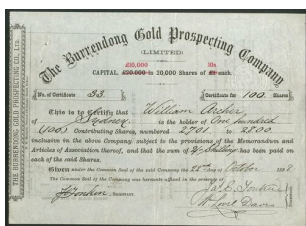 THE BURRENDONG GOLD PROSPECTING CO., LTD.
The Burrendong Gold Prospecting Company,
(LIMITED)
£10,000 10s
CAPITAL, £20,000 in 20,000 Shares of £1 each.
No. of Certificate 33. Certificate for 100 Shares
This is to Certify that William Archer
of Sydney is the holder of One hundred
(100) Contributing Shares, numbered 2701 to 2800
inclusive in the above Company, subject to the provisions of the Memorandum and
Articles of Association thereof, and that the sum of Shilling has been paid on
each of the said Shares.
Given under the Common Seal of the said Company the 22nd day of October 1888
The Common Seal of the Company was hereunto affixed in the presence of
SECRETARY.